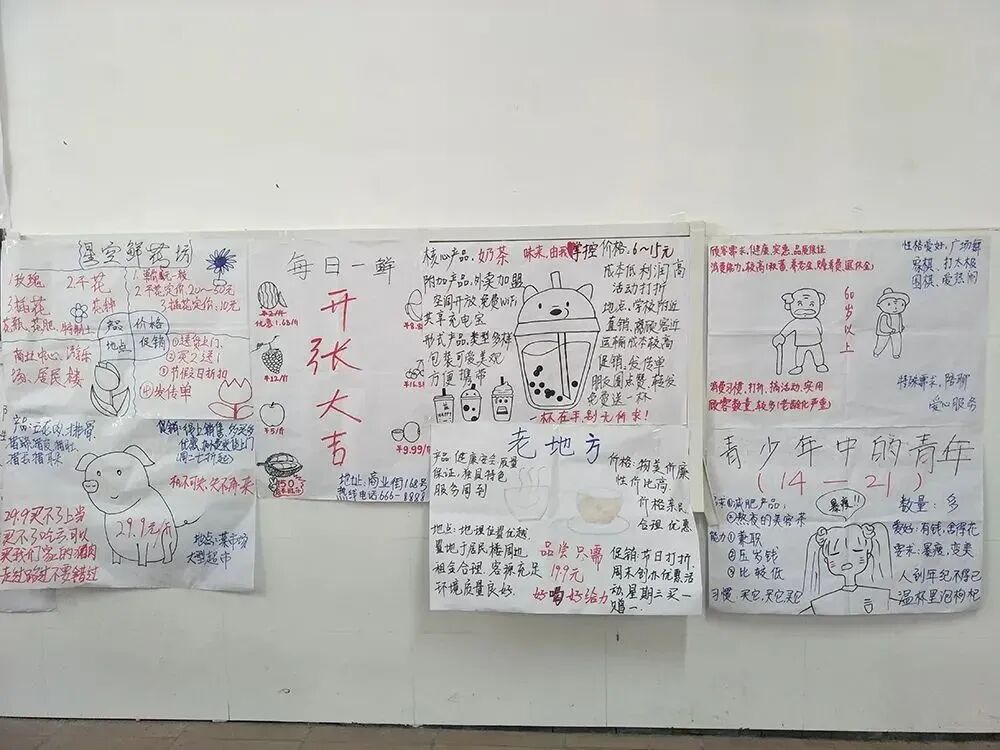 星空鲜花坊
1.玫瑰
2.干花
3.插花
花瓶、花肥、
花种
产品
价格
地点
促销
2.干花定价:20~50元
3.插花定价:10元
商业中心、游乐
场、居民楼
①送货上门
②买2送1
③节假日折扣
④发传单
每日一鲜
开张大吉
¥12/斤
¥5/斤
¥9.99/斤
地址:商业街168号
热线电话666-8888
核心产品:奶茶 味来,由我掌控
附加产品:外卖加盟
空间开放 免费WiFi
共享充电宝
形式产品:类型多样
包装可爱美观
方便携带
价格:6~15元
成本低利润高
活动打折
地点:学校附近
直销,离顾客近
运输成本较高
促销:发传单
朋友圈点赞、转发
免费送一杯
一杯在手,别无所求!
顾客需求:健康、实惠、品质保证
60岁以上
性格爱好:广场舞
象棋、打太极
围棋、爱热闹
消费习惯:打折、搞活动、实用
顾客数量:较多(老龄化严重)
特殊需求:陪聊
爱心服务
猪蹄、猪皮、猪肚
猪舌、猪耳朵
促销:线上销售 多买多
周二七折起
29.9元/斤
29.9买不了上当
买不了吃亏,可以
买我们家的猪肉
走过路过不要错过
地点:菜市场
大型超市
老地方
产品:健康安全、质量
保证、独具特色
服务周到
价格:物美价廉
性价比高
价格亲民
合理 优惠
地点:地理位置优越
置地于居民楼周边
租金合理 客源充足
环境质量良好
品尝只需
19.9元
好喝好给力
促销:节日打折
周末创办优惠活
动,星期三买一
赠一
青少年中的青年
(14-21)
①减肥产品
②熬夜的美容茶
能力:①兼职
②压岁钱
③比较低
习惯:买它,买它,买它
暴瘦!!
数量:多
爱好:有钱,舍得花
需求:暴瘦,变美
人到年纪不得已
温杯里泡枸杞